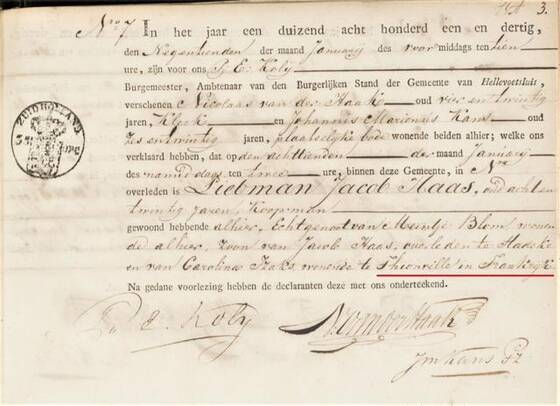 194 3.
Nro 7 In het jaar een duizend acht honderd een en dertig,
den Negentienden der maand Januarij des voor middags ten tien
ure, zijn voor ons P. E. Koly
Burgemeester, Ambtenaar van den Burgerlijken Stand der Gemeente van Hellevoetsluis,
verschenen Nicolaas van der Haak oud vier en twintig
jaren, Klerk en Johannis Marionus Kans oud
zes en twintig jaren, plaatselijke bode wonende beiden alhier; welke ons
verklaard hebben, dat op den achttienden der maand Januarij
des namiddags ten twee ure, binnen deze Gemeente, in No
overleden is Liebman Jacob Haas, oud acht en
twintig jaren, Koopman
gewoond hebbende alhier, Echtgenoot van Meintje Blom wonen
de alhier, Zoon van Jacob Haas, overleden te
en van Carolina Izaks, wonende te Thionville in Frankrijk
Na gedane voorlezing hebben de declaranten deze met ons onderteekend.
P. E. Koly
N. van der Haak
J M Kans Pz
ZUIDHOLLAND